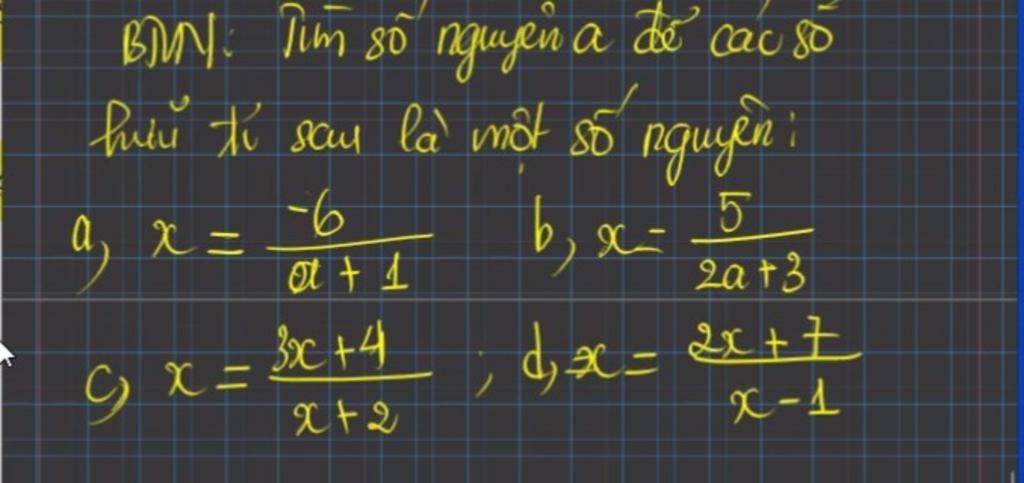 BTVN: Tìm số nguyên a để các số
hữu tỉ sau là một số nguyên:
a, x = -6/(a + 1) b, x = 5/(2a+3)
c, x = (3x+4)/(x+2) ; d, x = (2x+7)/(x-1)